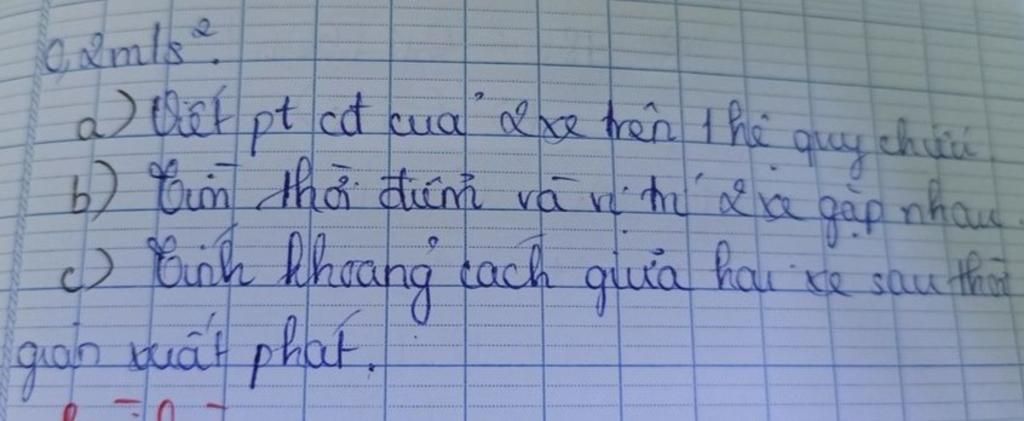 0,2m/s².
a) Viết pt cđ của 2 xe trên 1 hệ quy chiếu
b) Tìm thời điểm và vị trí 2 xe gặp nhau.
c) Tính khoảng cách giữa hai xe sau thời
gian xuất phát.